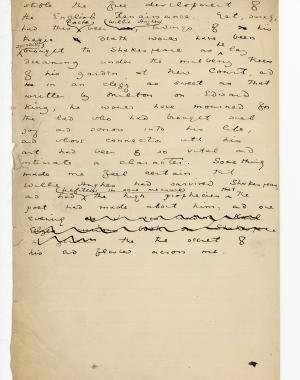 stole the free development of
the English Renaissance. Yet, surely,
had
(Willie dying) tidings of his
tragic death would have been
brought to Shakespeare as he lay
dreaming under the mulberry trees
of his garden at New Court, and
in an elegy as sweet as that
written by Milton on Edward
King, he would have mourned for
the lad who had brought such
joy and sorrow into his life,
and whose connection with his
art had been of so vital and
intimate a character. Something
made me feel certain that
Willie Hughes had survived Shakespeare,
(fulfilled in some measure)
and had the high prophecies the
poet had made about him, and one
evening
the true secret of
his end flashed across me.